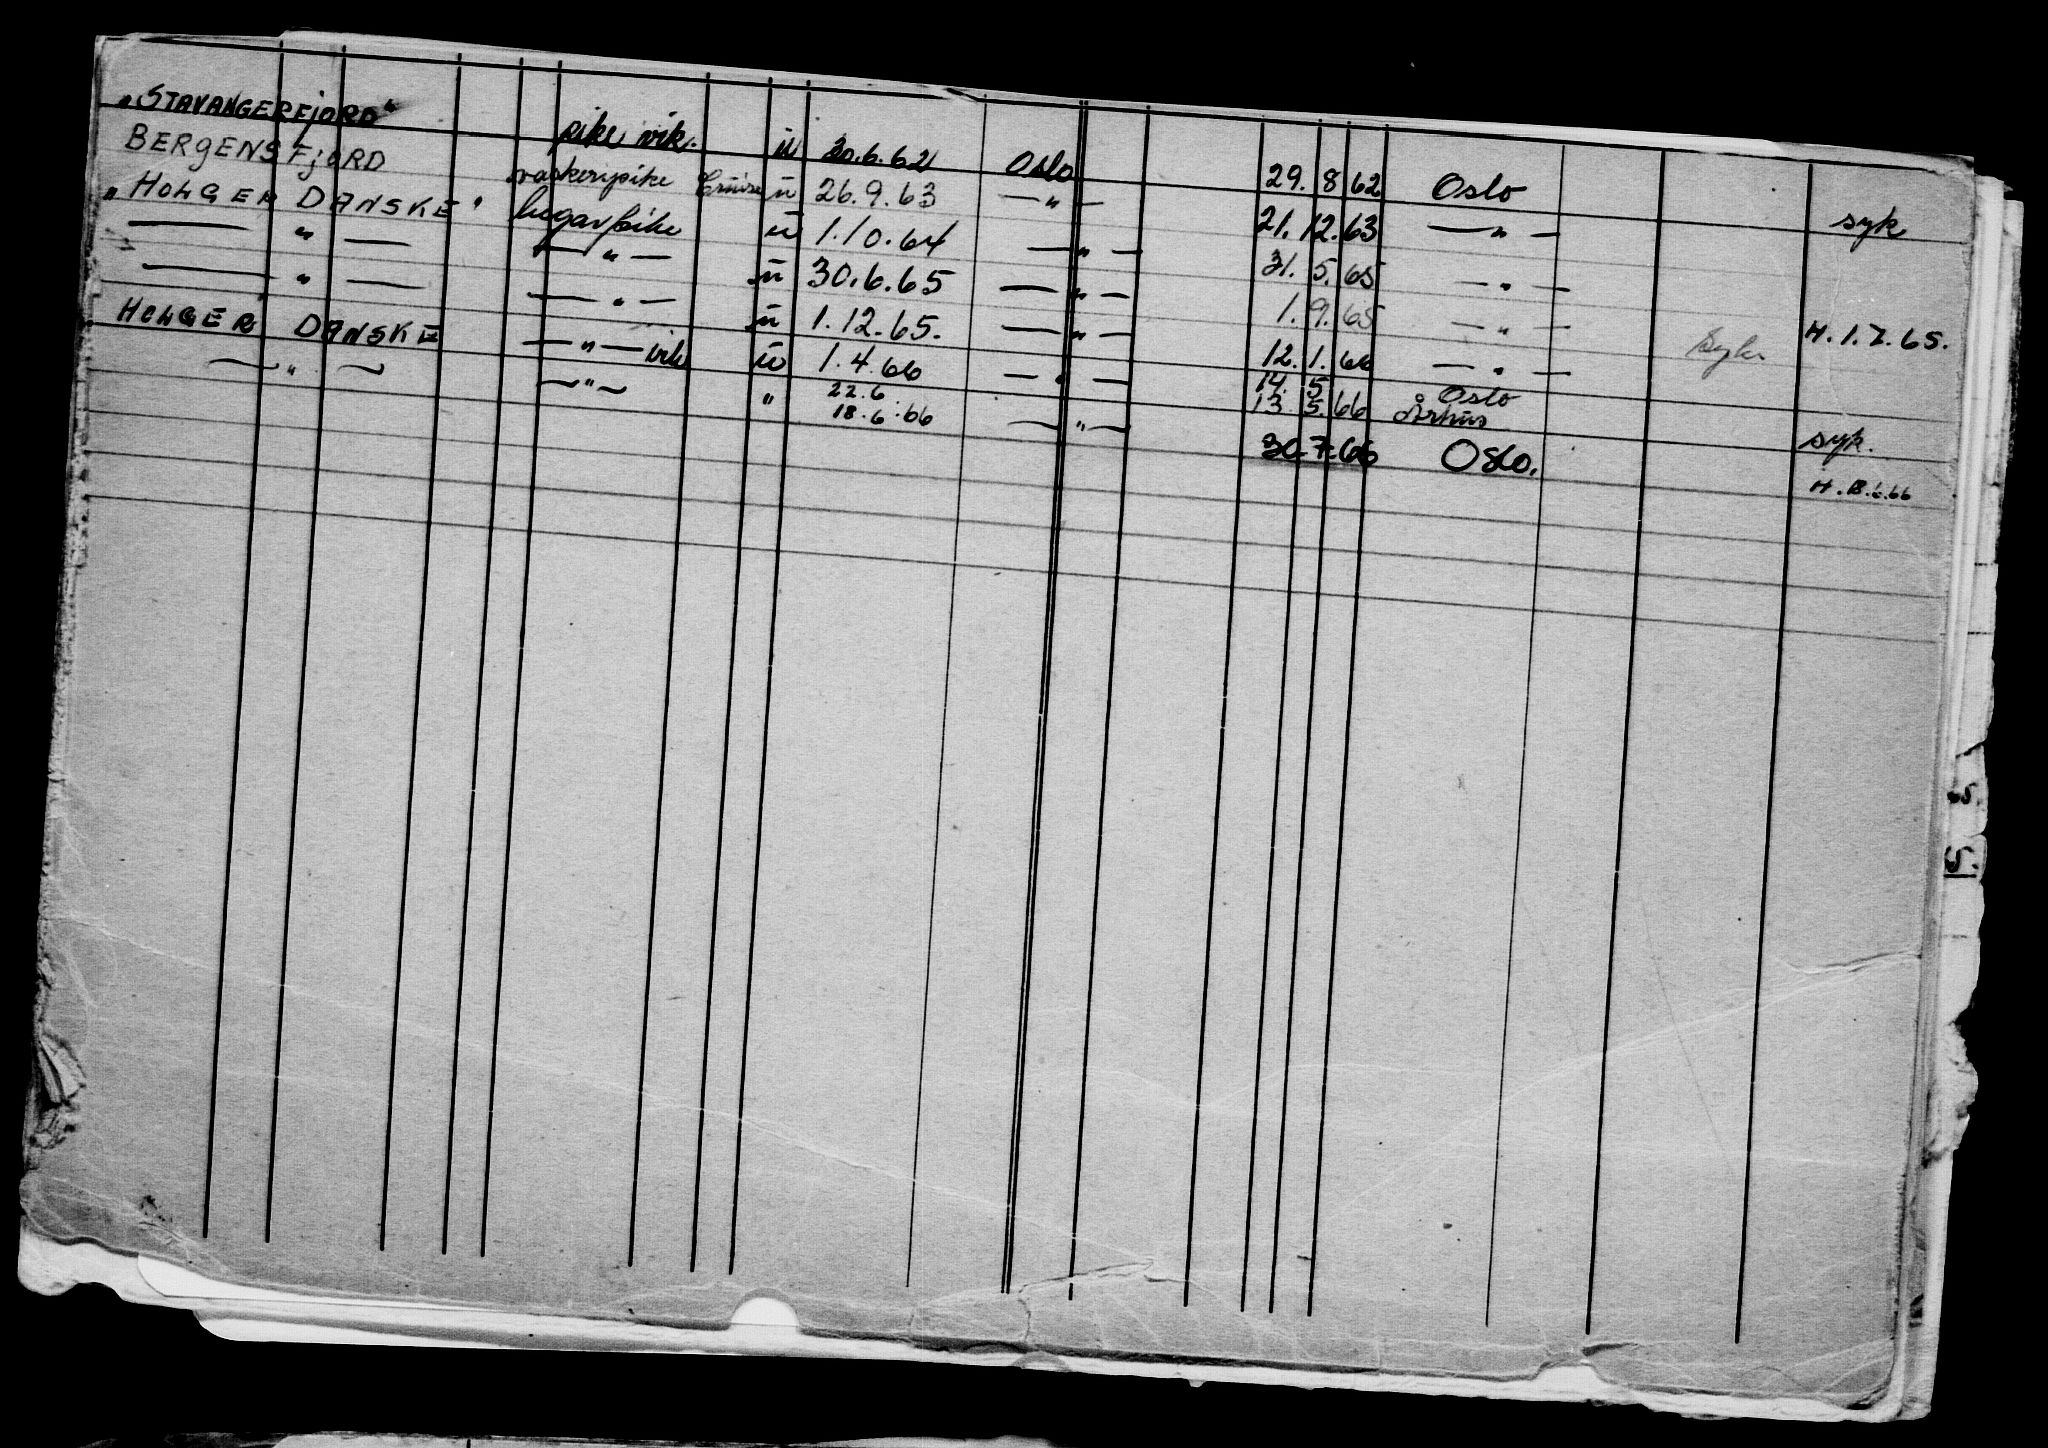 „STAVANGERFJORD“ pike vik. ü 30.6.62 Oslo 29. 8 62 Oslo syk
BERGENSFJORD vaskeripike Cruise ü 26.9.63 — " — 21. 12. 63 — " —
„HOLGER DANSKE" lugarpike ü 1.10.64 — " — 31. 5. 65 — " —
— " — — " — ü 30.6.65 — " — 1. 9. 65 — " — H. 1.7.65.
— " — — " — ü 1.12.65. — " — 12. 1. 66 — " — Syk
HOLGER DANSKE — " — vik ü 1.4.66 — " — 14. 5 Oslo
13. 5. 66 Århus syk.
— " — — " — " 22.6.
18.6.66 — " — 30.7.66 Oslo. H. 18.6.66
5.
5.